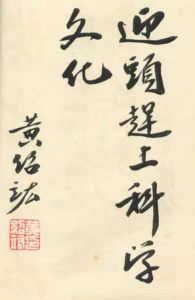 迎頭趕上科学
文化
黄绍竑